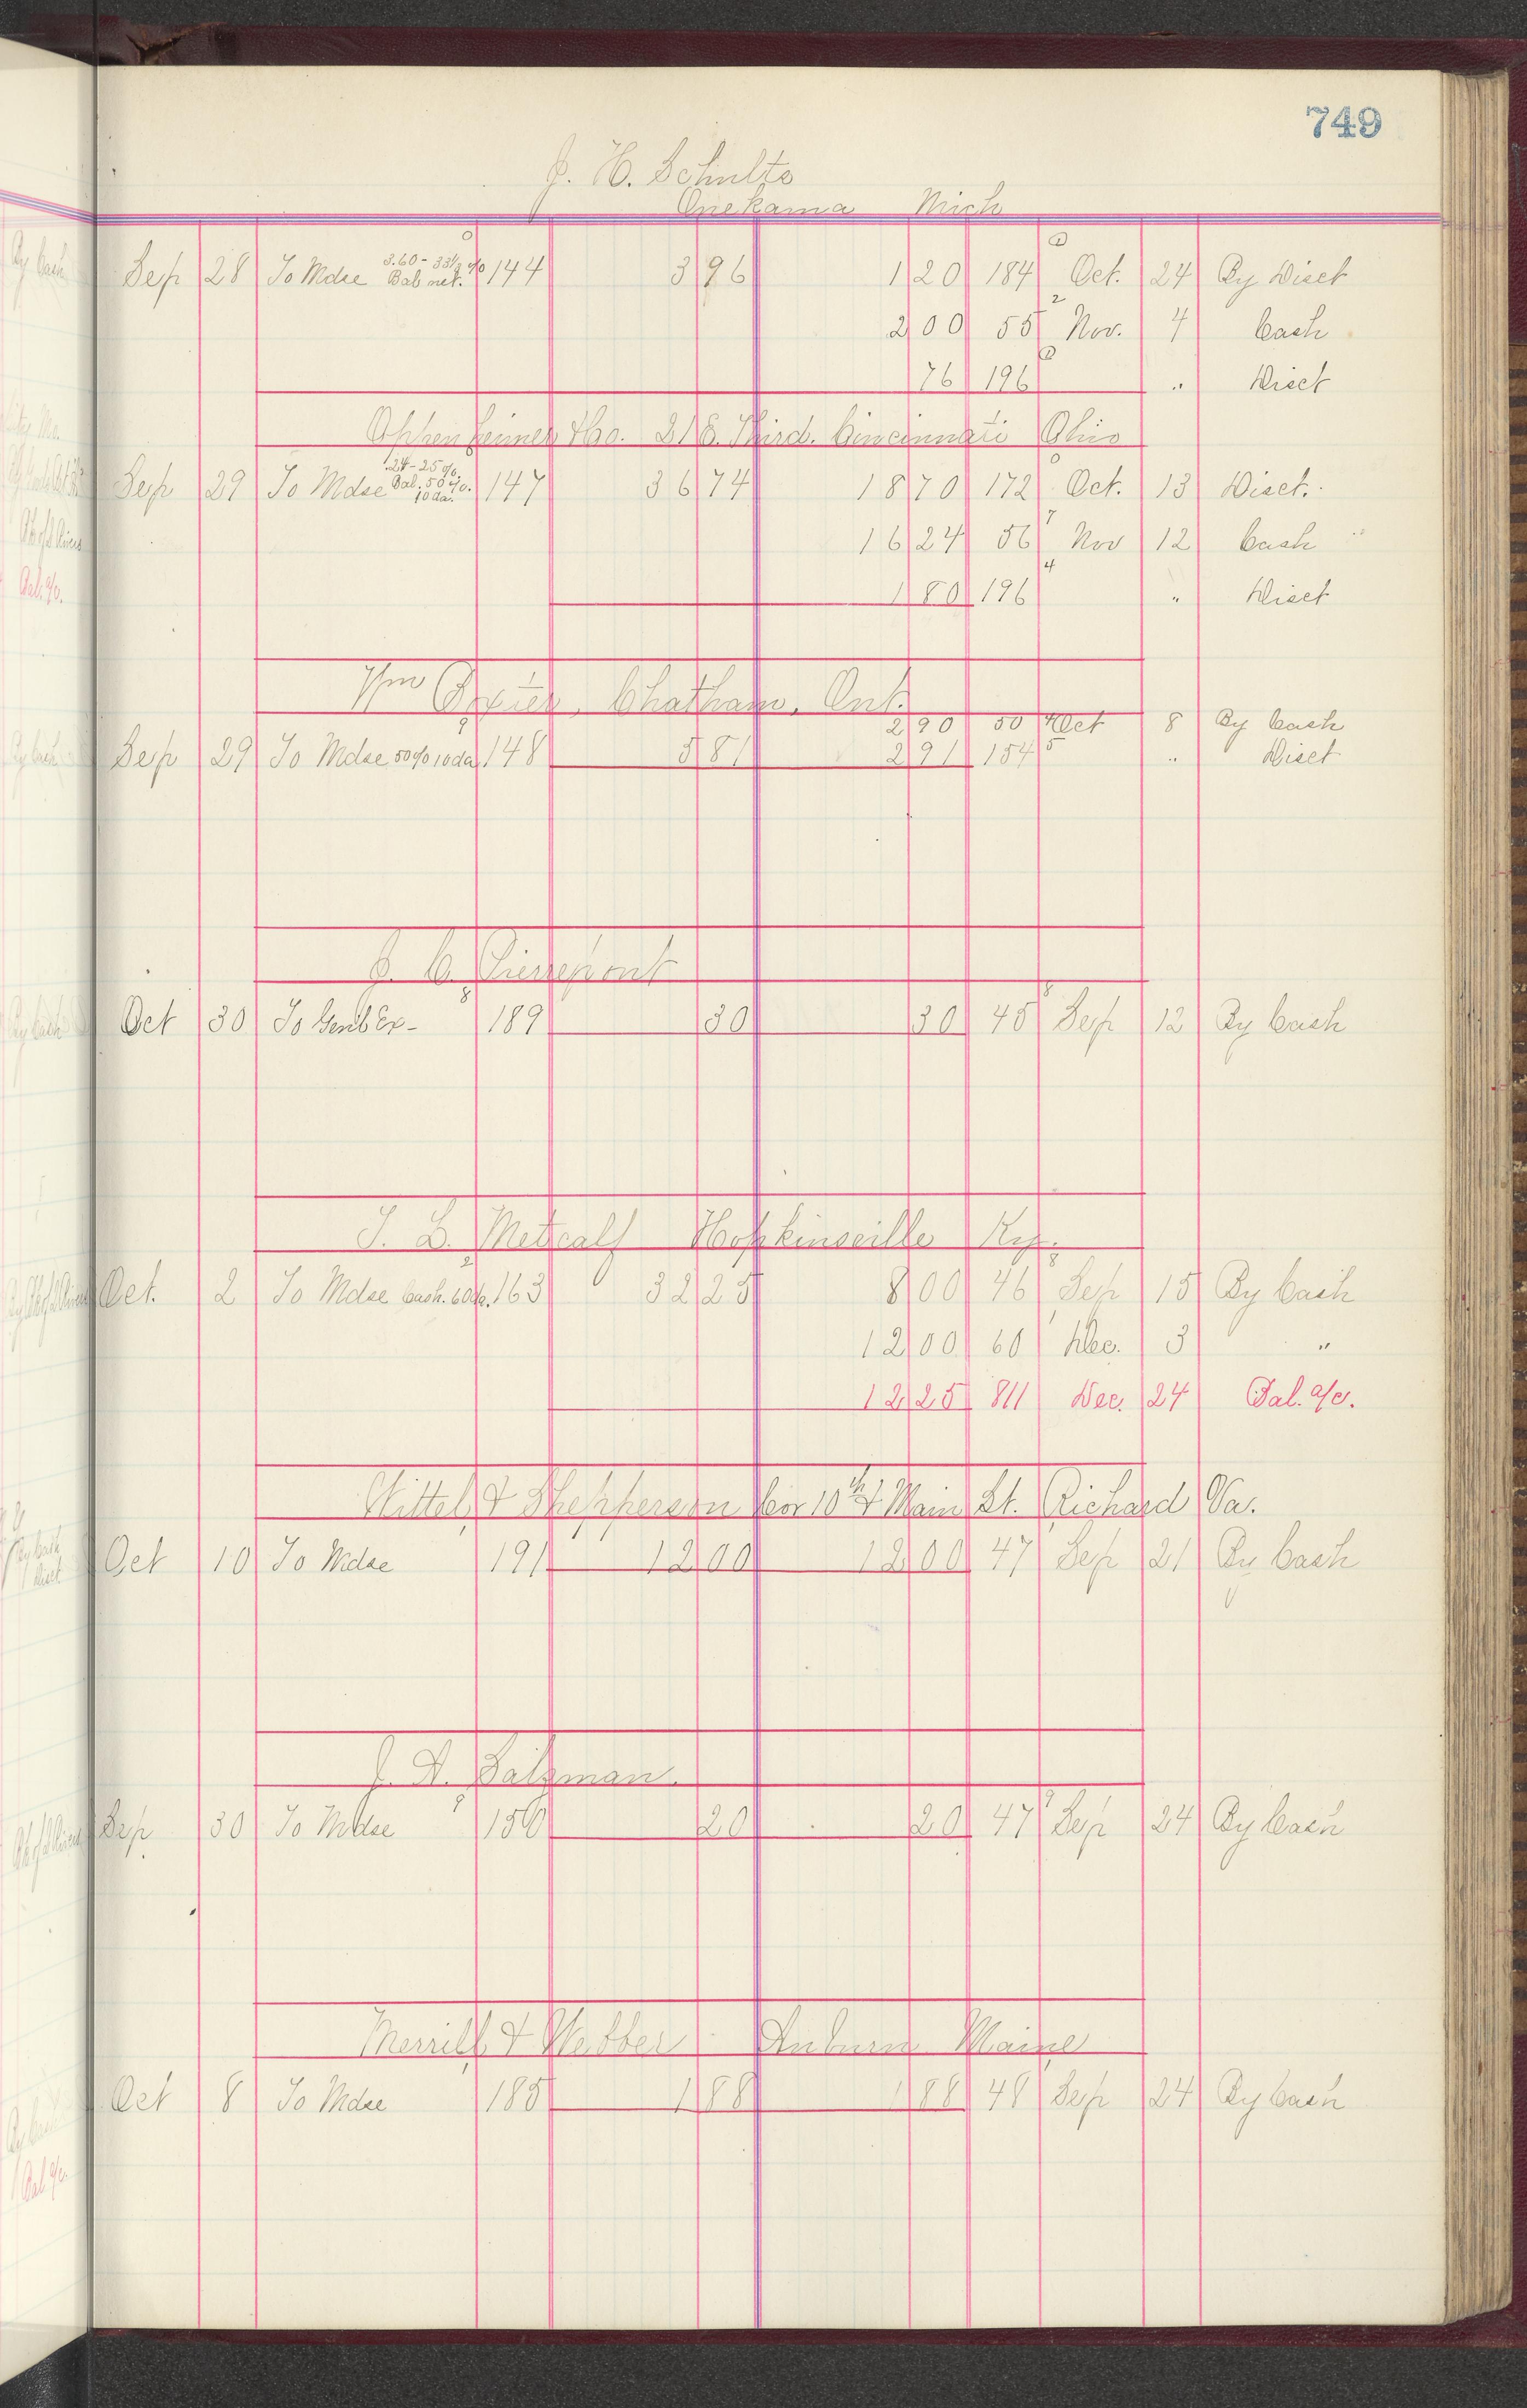 749
J. H. Schulte
Onekama Mich
Sep 28 To Mdse 3.60 - 33 1/3 % Bal net. 144 3 96 1 20 184 Oct. 24 By Disct
2 00 55 Nov. 4 Cash
76 196 " Disct
Oppenheimer & Co. 21 E. Third. Cincinnati Ohio
Sep 29 To Mdse .24 - 25 %. Bal. 50 %. 10 da. 147 36 74 18 70 172 Oct. 13 Disct.
16 24 56 Nov 12 Cash "
1 80 196 " Disct
Wm Chatham, Ont.
2 90 50 Oct 8 By Cash
Sep 29 To Mdse 50% 10 da 148 5 81 2 91 154 " Disct
J. C. Pierrepont
Oct 30 To Genl Ex- 189 30 30 45 Sep 12 By Cash
T. L. Metcalf Hopkinsville Ky.
Oct. 2 To Mdse Cash. 60 da. 163 32 25 8 00 46 Sep 15 By Cash
12 00 60 Dec. 3 "
12 25 811 Dec. 24 Bal. a/c.
& Shepperson Cor 10th & Main St. Richard Va.
Oct 10 To Mdse 191 12 00 12 00 47 Sep 21 By Cash
J. A. Salzman.
Sep 30 To Mdse 150 20 20 47 Sep 24 By Cash
Merrill & Webber Auburn Maine
Oct 8 To Mdse 185 1 88 1 88 48 Sep 24 By Cash